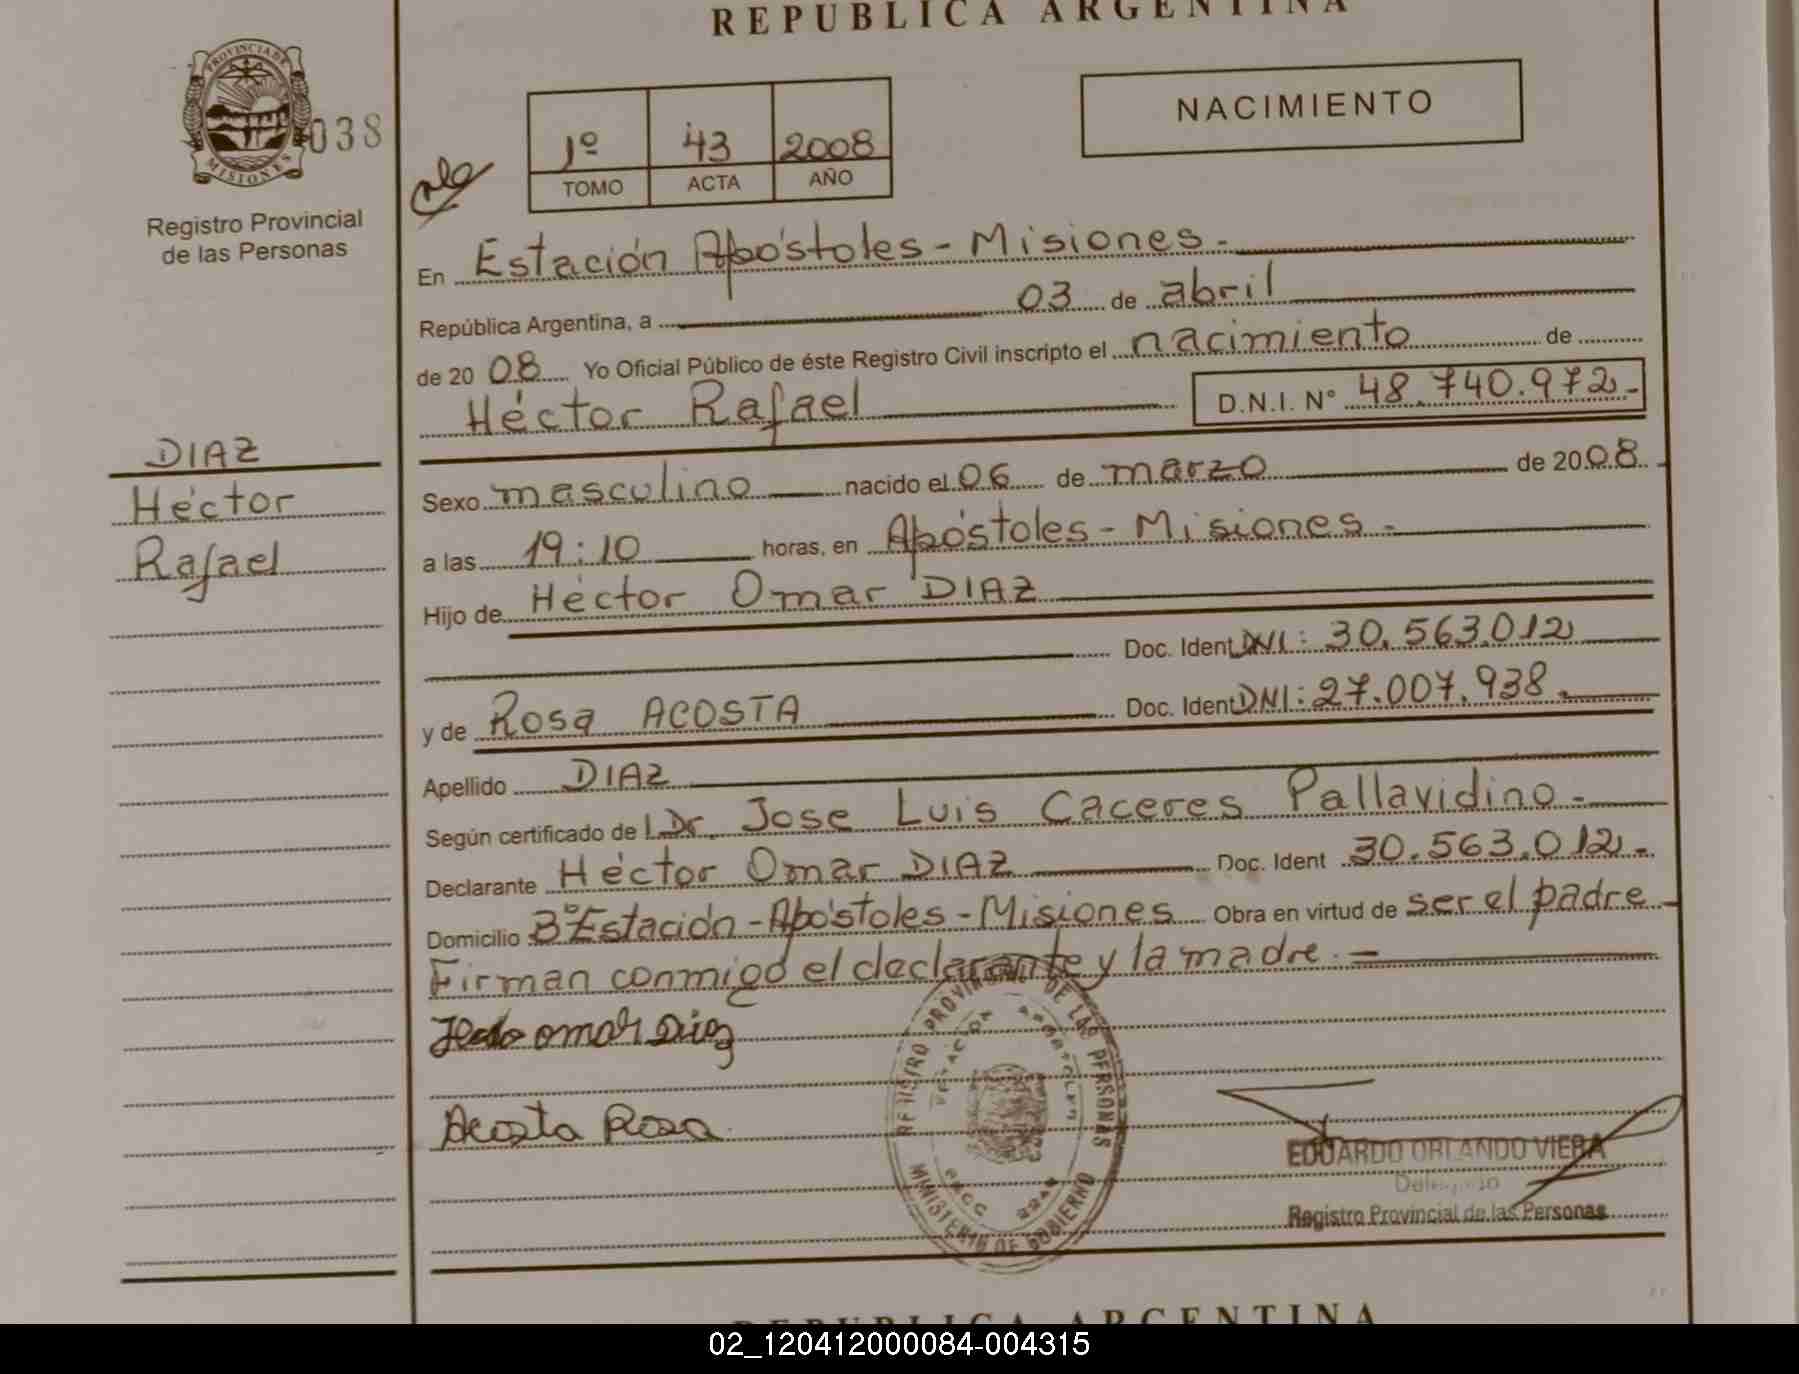 REPUBLICA ARGENTINA
PROVINCIA DE
MISIONES
038
Registro Provincial
de las Personas
1º 43 2008
TOMO ACTA AÑO
NACIMIENTO
En Estación Apóstoles - Misiones -
República Argentina, a 03 de abril
de 20 08 Yo Oficial Público de éste Registro Civil inscripto el nacimiento de
Héctor Rafael D.N.I. N° 48.740.972-
DIAZ
Héctor
Rafael
Sexo masculino nacido el 06 de marzo de 2008 -
a las 19:10 horas, en Apóstoles - Misiones -
Hijo de Héctor Omar DIAZ
Doc. Ident DNI: 30.563.012
y de Rosa ACOSTA Doc. Ident DNI: 27.007.938.
Apellido DIAZ
Según certificado de Dr. Jose Luis Caceres Pallavidino -
Declarante Héctor Omar DIAZ Doc. Ident 30.563.012 -
Domicilio Bº Estación - Apóstoles - Misiones Obra en virtud de ser el padre -
Firman conmigo el declarante y la madre. -
omar Diaz
Acosta Rosa
REGISTRO PROVINCIAL DE LAS PERSONAS
MINISTERIO DE GOBIERNO
EDUARDO ORLANDO VIERA
Delegado
Registro Provincial de las Personas
REPUBLICA ARGENTINA
02_120412000084-004315